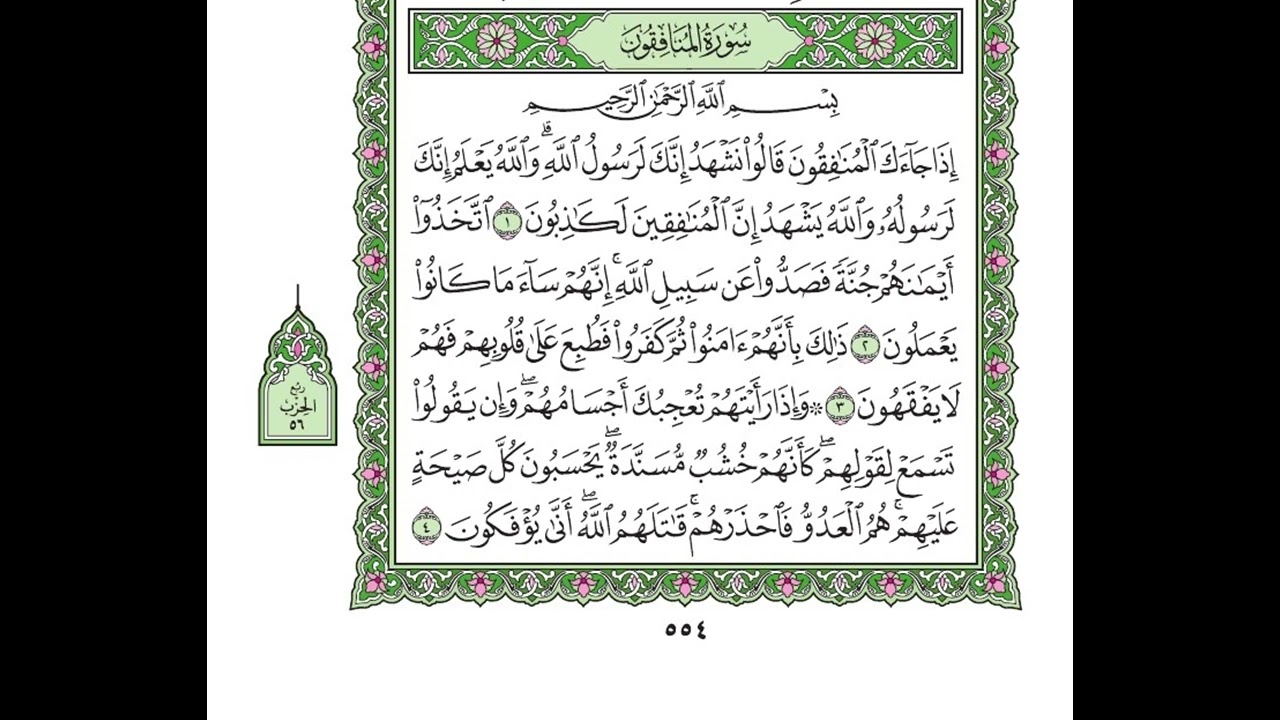 سُورَةُ المُنَافِقُونَ
بِسْمِ ٱللَّهِ ٱلرَّحْمَٰنِ ٱلرَّحِيمِ
إِذَا جَآءَكَ ٱلْمُنَٰفِقُونَ قَالُوا۟ نَشْهَدُ إِنَّكَ لَرَسُولُ ٱللَّهِ ۗ وَٱللَّهُ يَعْلَمُ إِنَّكَ
لَرَسُولُهُۥ وَٱللَّهُ يَشْهَدُ إِنَّ ٱلْمُنَٰفِقِينَ لَكَٰذِبُونَ ١ ٱتَّخَذُوٓا۟
أَيْمَٰنَهُمْ جُنَّةً فَصَدُّوا۟ عَن سَبِيلِ ٱللَّهِ ۚ إِنَّهُمْ سَآءَ مَا كَانُوا۟
يَعْمَلُونَ ٢ ذَٰلِكَ بِأَنَّهُمْ ءَامَنُوا۟ ثُمَّ كَفَرُوا۟ فَطُبِعَ عَلَىٰ قُلُوبِهِمْ فَهُمْ
لَا يَفْقَهُونَ ٣ ۞ وَإِذَا رَأَيْتَهُمْ تُعْجِبُكَ أَجْسَامُهُمْ ۖ وَإِن يَقُولُوا۟
تَسْمَعْ لِقَوْلِهِمْ ۖ كَأَنَّهُمْ خُشُبٌ مُّسَنَّدَةٌ ۖ يَحْسَبُونَ كُلَّ صَيْحَةٍ
عَلَيْهِمْ ۚ هُمُ ٱلْعَدُوُّ فَٱحْذَرْهُمْ ۚ قَٰتَلَهُمُ ٱللَّهُ ۖ أَنَّىٰ يُؤْفَكُونَ ٤
رُبْع
الحِزْب
٥٦
٥٥٤